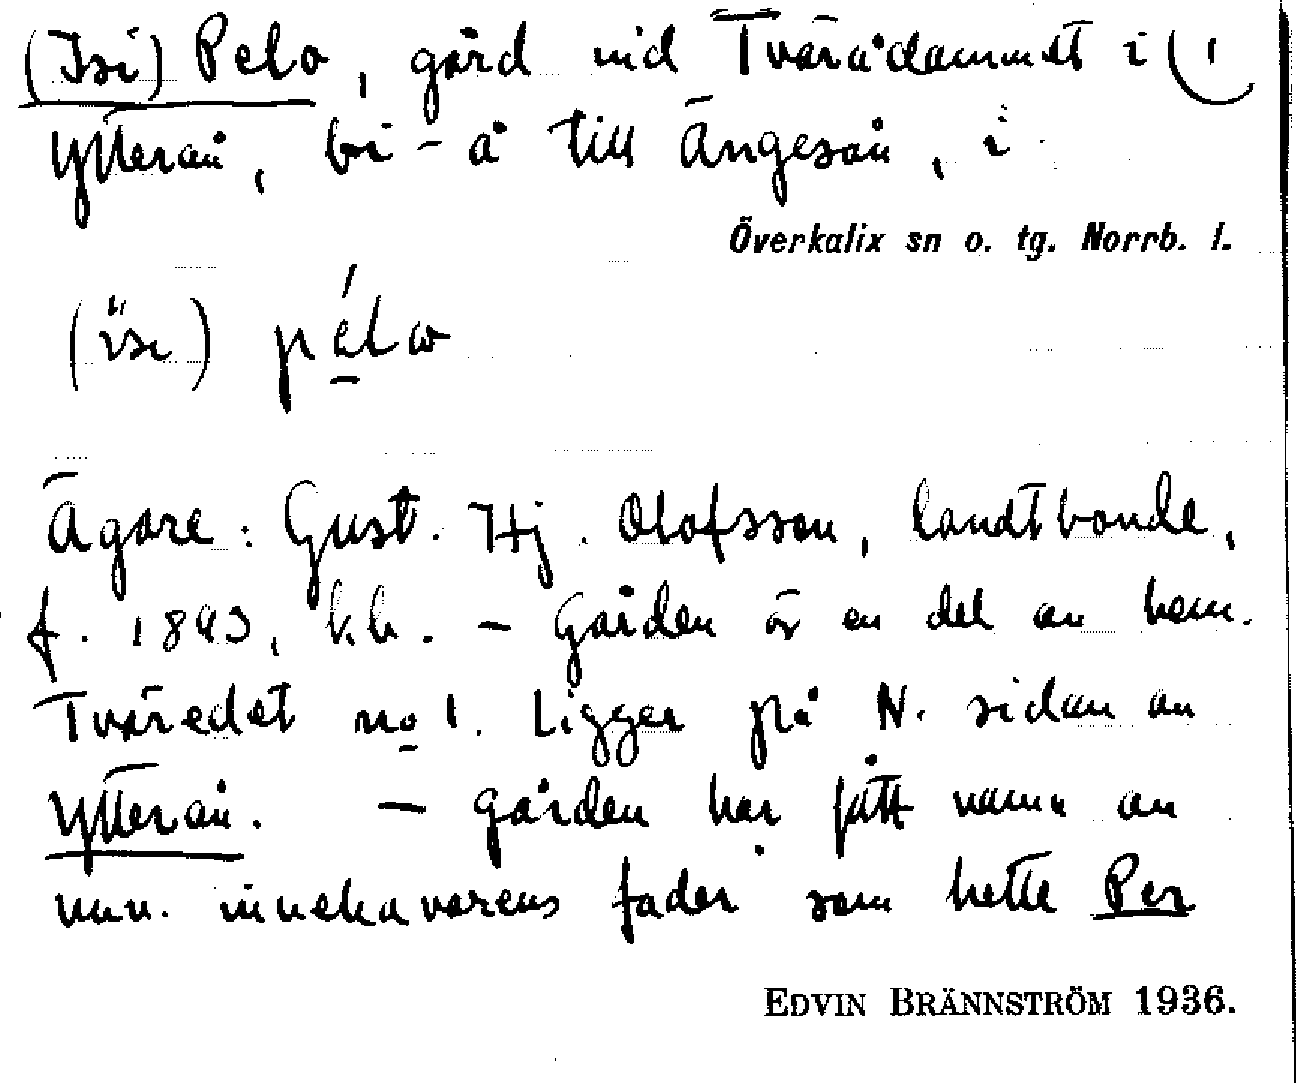 (Isi) Pelo, gård vid Tvärådammet i (1
Ytterån, bi-å till Ängesån, i
Överkalix sn o. tg. Norrb. l.
(ïsı) pélω
Ägare: Gust. Hj. Olofsson, landtbonde,
f. 1893, h.h. – Gården är en del av hem.
Tväredet no 1. Ligger på N. sidan av
Ytterån. – Gården har fått namn av
nuv. innehavarens fader som hette Per
EDVIN BRÄNNSTRÖM 1936.